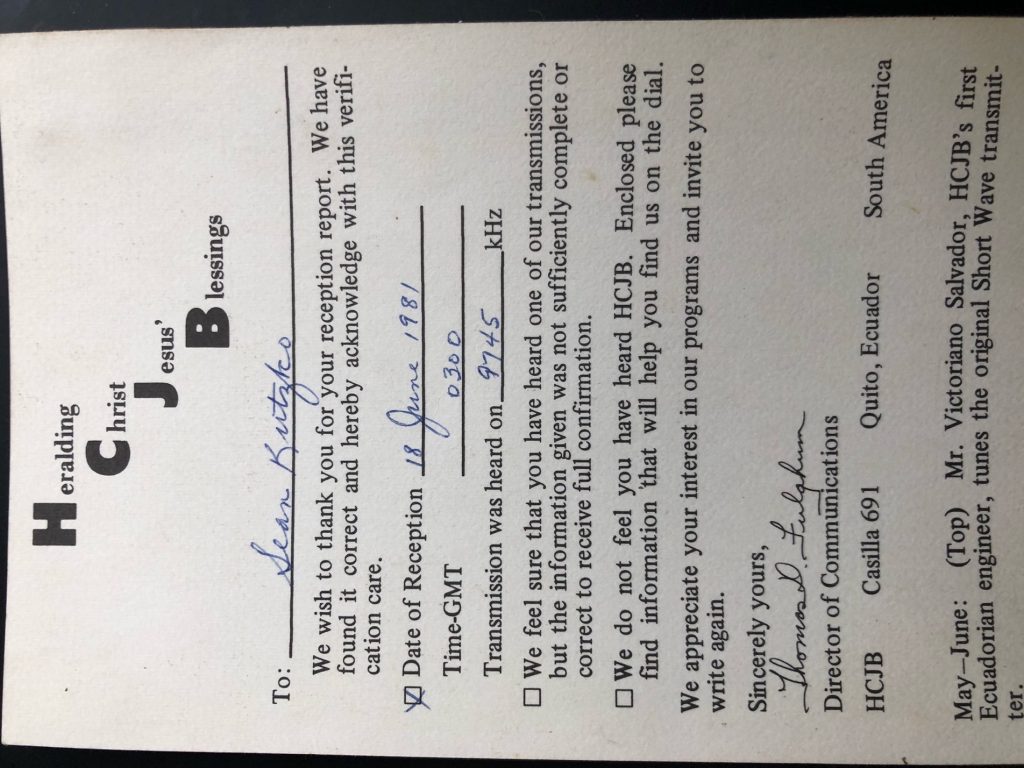 Heralding
Christ
Jesus'
Blessings
To: Sean Kutzko
We wish to thank you for your reception report. We have
found it correct and hereby acknowledge with this verifi-
cation care.
☑ Date of Reception 18 June 1981
Time-GMT 0300
Transmission was heard on 9745 kHz
☐ We feel sure that you have heard one of our transmissions,
but the information given was not sufficiently complete or
correct to receive full confirmation.
☐ We do not feel you have heard HCJB. Enclosed please
find information that will help you find us on the dial.
We appreciate your interest in our programs and invite you to
write again.
Sincerely yours,
Thomas D. Fulghum
Director of Communications
HCJB Casilla 691 Quito, Ecuador South America
May–June: (Top) Mr. Victoriano Salvador, HCJB's first
Ecuadorian engineer, tunes the original Short Wave transmit-
ter.